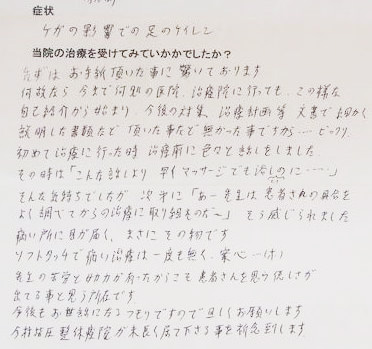 症状
ケガの影響での足のケイレン
当院の治療を受けてみていかがでしたか？
先ずはお手紙頂いた事に驚いております
何故なら今まで何処の医院、治療院に行っても、この様な
自己紹介から始まり、今後の対策、治療計画等文書で細かく
説明した書類など頂いた事など無かった事ですから…ビックリ
初めて治療に行った時治療前に色々と話しをしました
その時は「こんな話しより早くマッサージでも治しのに……」
そんな気持ちでしたが次第に「あー先生は患者さんの具合を
よく調べてからの治療に取り組むのだ～」そう感じられました
痛い所に目が届く、まさにその物です
ソフトタッチで痛い治療は一度も無く、安心…(汗)
先生の苦労と努力が有ったからこそ患者さんを思う優しさが
出てる事と思う所在です
今後もお世話になるつもりですので宜しくお願いします
整体療院が末長く居て下さる事を祈念致します